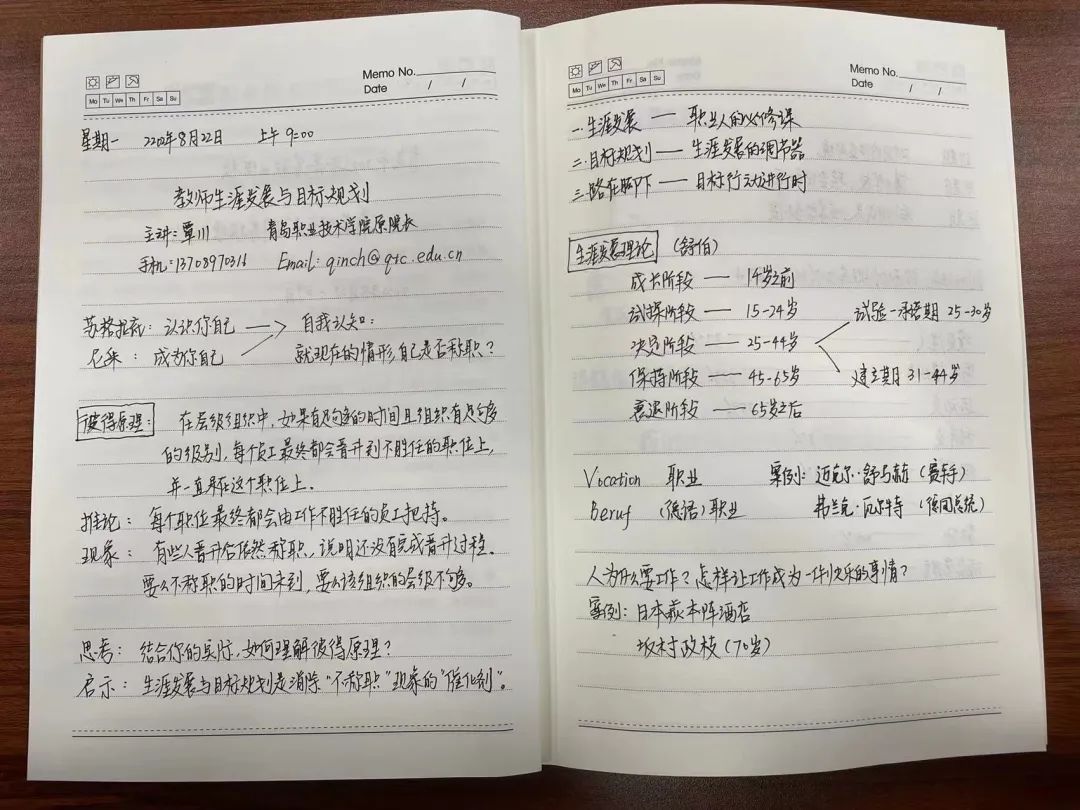 Memo No.
Date / /
Mo Tu We Th Fr Sa Su
星期一 2202年8月22日 上午 9:00
教师生涯发展与目标规划
主讲:覃川 青岛职业技术学院原院长
手机:13708970316 Email: qinch@qtc.edu.cn
苏格拉底: 认识你自己 → 自我认知:
尼采: 成为你自己 就现在的情形,自己是否称职?
彼得原理: 在层级组织中,如果有足够的时间且组织有足够
的级别,每个员工最终都会晋升到不胜任的职位上,
并一直呆在这个职位上。
推论: 每个职位最终都会由工作不胜任的员工把持。
现象: 有些人晋升后依然称职,说明还没有完成晋升过程。
要么不称职的时间未到,要么该组织的层级不够。
思考: 结合你的实际,如何理解彼得原理?
启示: 生涯发展与目标规划是消除“不称职”现象的“催化剂”。
Memo No.
Date / /
Mo Tu We Th Fr Sa Su
一.生涯发展 —— 职业人的必修课
二.目标规划 —— 生涯发展的调节器
三.路在脚下 —— 目标行动进行时
生涯发展理论 (舒伯)
成长阶段 —— 14岁之前
试探阶段 —— 15-24岁 试验-承诺期 25-30岁
决定阶段 —— 25-44岁
保持阶段 —— 45-65岁 建立期 31-44岁
衰退阶段 —— 65岁之后
Vocation 职业 案例: 迈克尔·舒马赫(赛车手)
Beruf (德语)职业 弗兰克·瓦尔特(德国总统)
人为什么要工作?怎样让工作成为一件快乐的事情?
案例: 日本薮本阵酒店
坂村政枝(70岁)